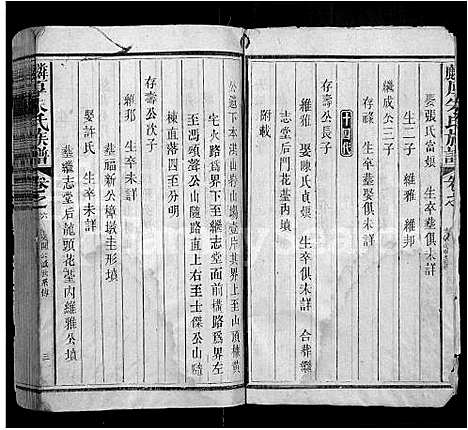 娶張氏富娘 生卒塟俱未詳
生二子 維雅 維邦
繼成公三子
存祿 生卒塟娶俱未詳
十四代
存壽公長子
維雅 娶陳氏貞娘 生卒俱未詳 合葬繼
志堂后門龍頭花墓內墳
附載
公遺下本港山特山場壹片其界上至山頂橫
宅火路爲界下至繼志堂面前橫路爲界左
至馮頸聲公山隨路直上右至士傑公山隨
棟直落四至分明
存壽公次子
維邦 生卒未詳
塟福新公樟墩圭形墳
娶許氏 生卒未詳
塟繼志堂后龍頭花墓內維雅公墳
麟厚朱氏族譜 卷之六
三